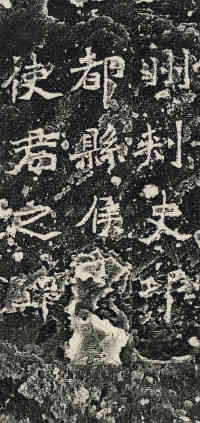 州刾史邛
都縣侯
使君之碑